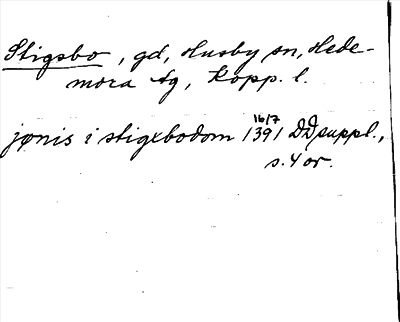 Stigsbo, gd, Husby sn, Hede-
mora tg, Kopp. l.
jønis i stigxbodom 16/7 1391 DD suppl.,
s. 4 or.